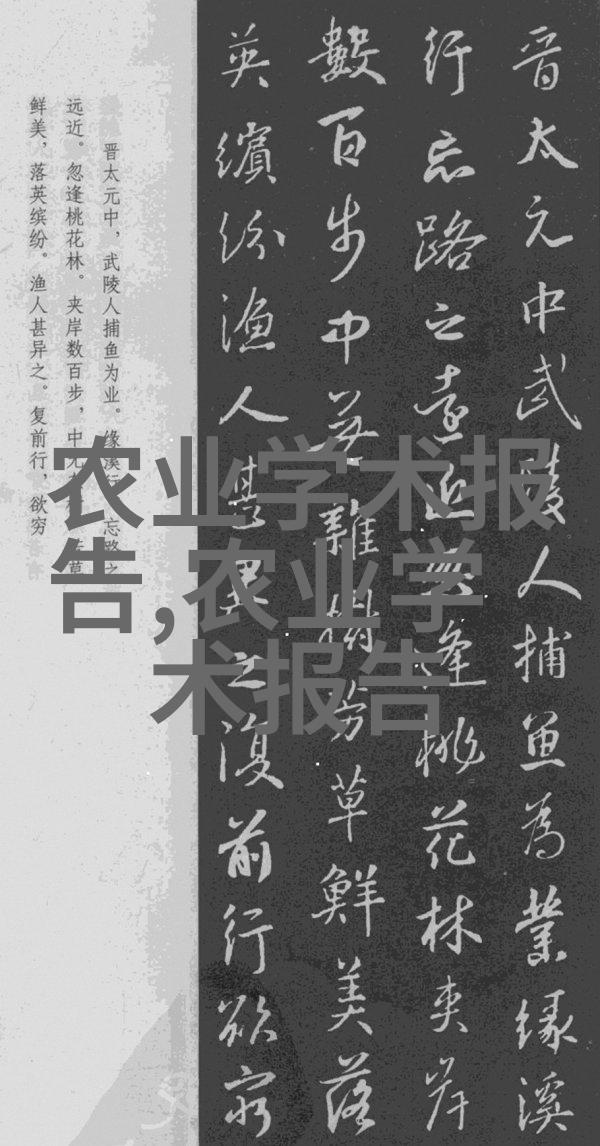 晋太元中武陵人捕魚為業緣溪
行忘路之遠近忽逢桃花林夾岸
數百步中無雜樹芳草鮮美落
英繽紛漁人甚異之復前行欲窮
晋太元中，武陵人捕鱼为业。缘溪行，忘路之
远近。忽逢桃花林。夹岸数百步，中无杂草
鲜美，落英缤纷。渔人甚异之。复前行，欲穷
农业学术报
告,农业学
术报告